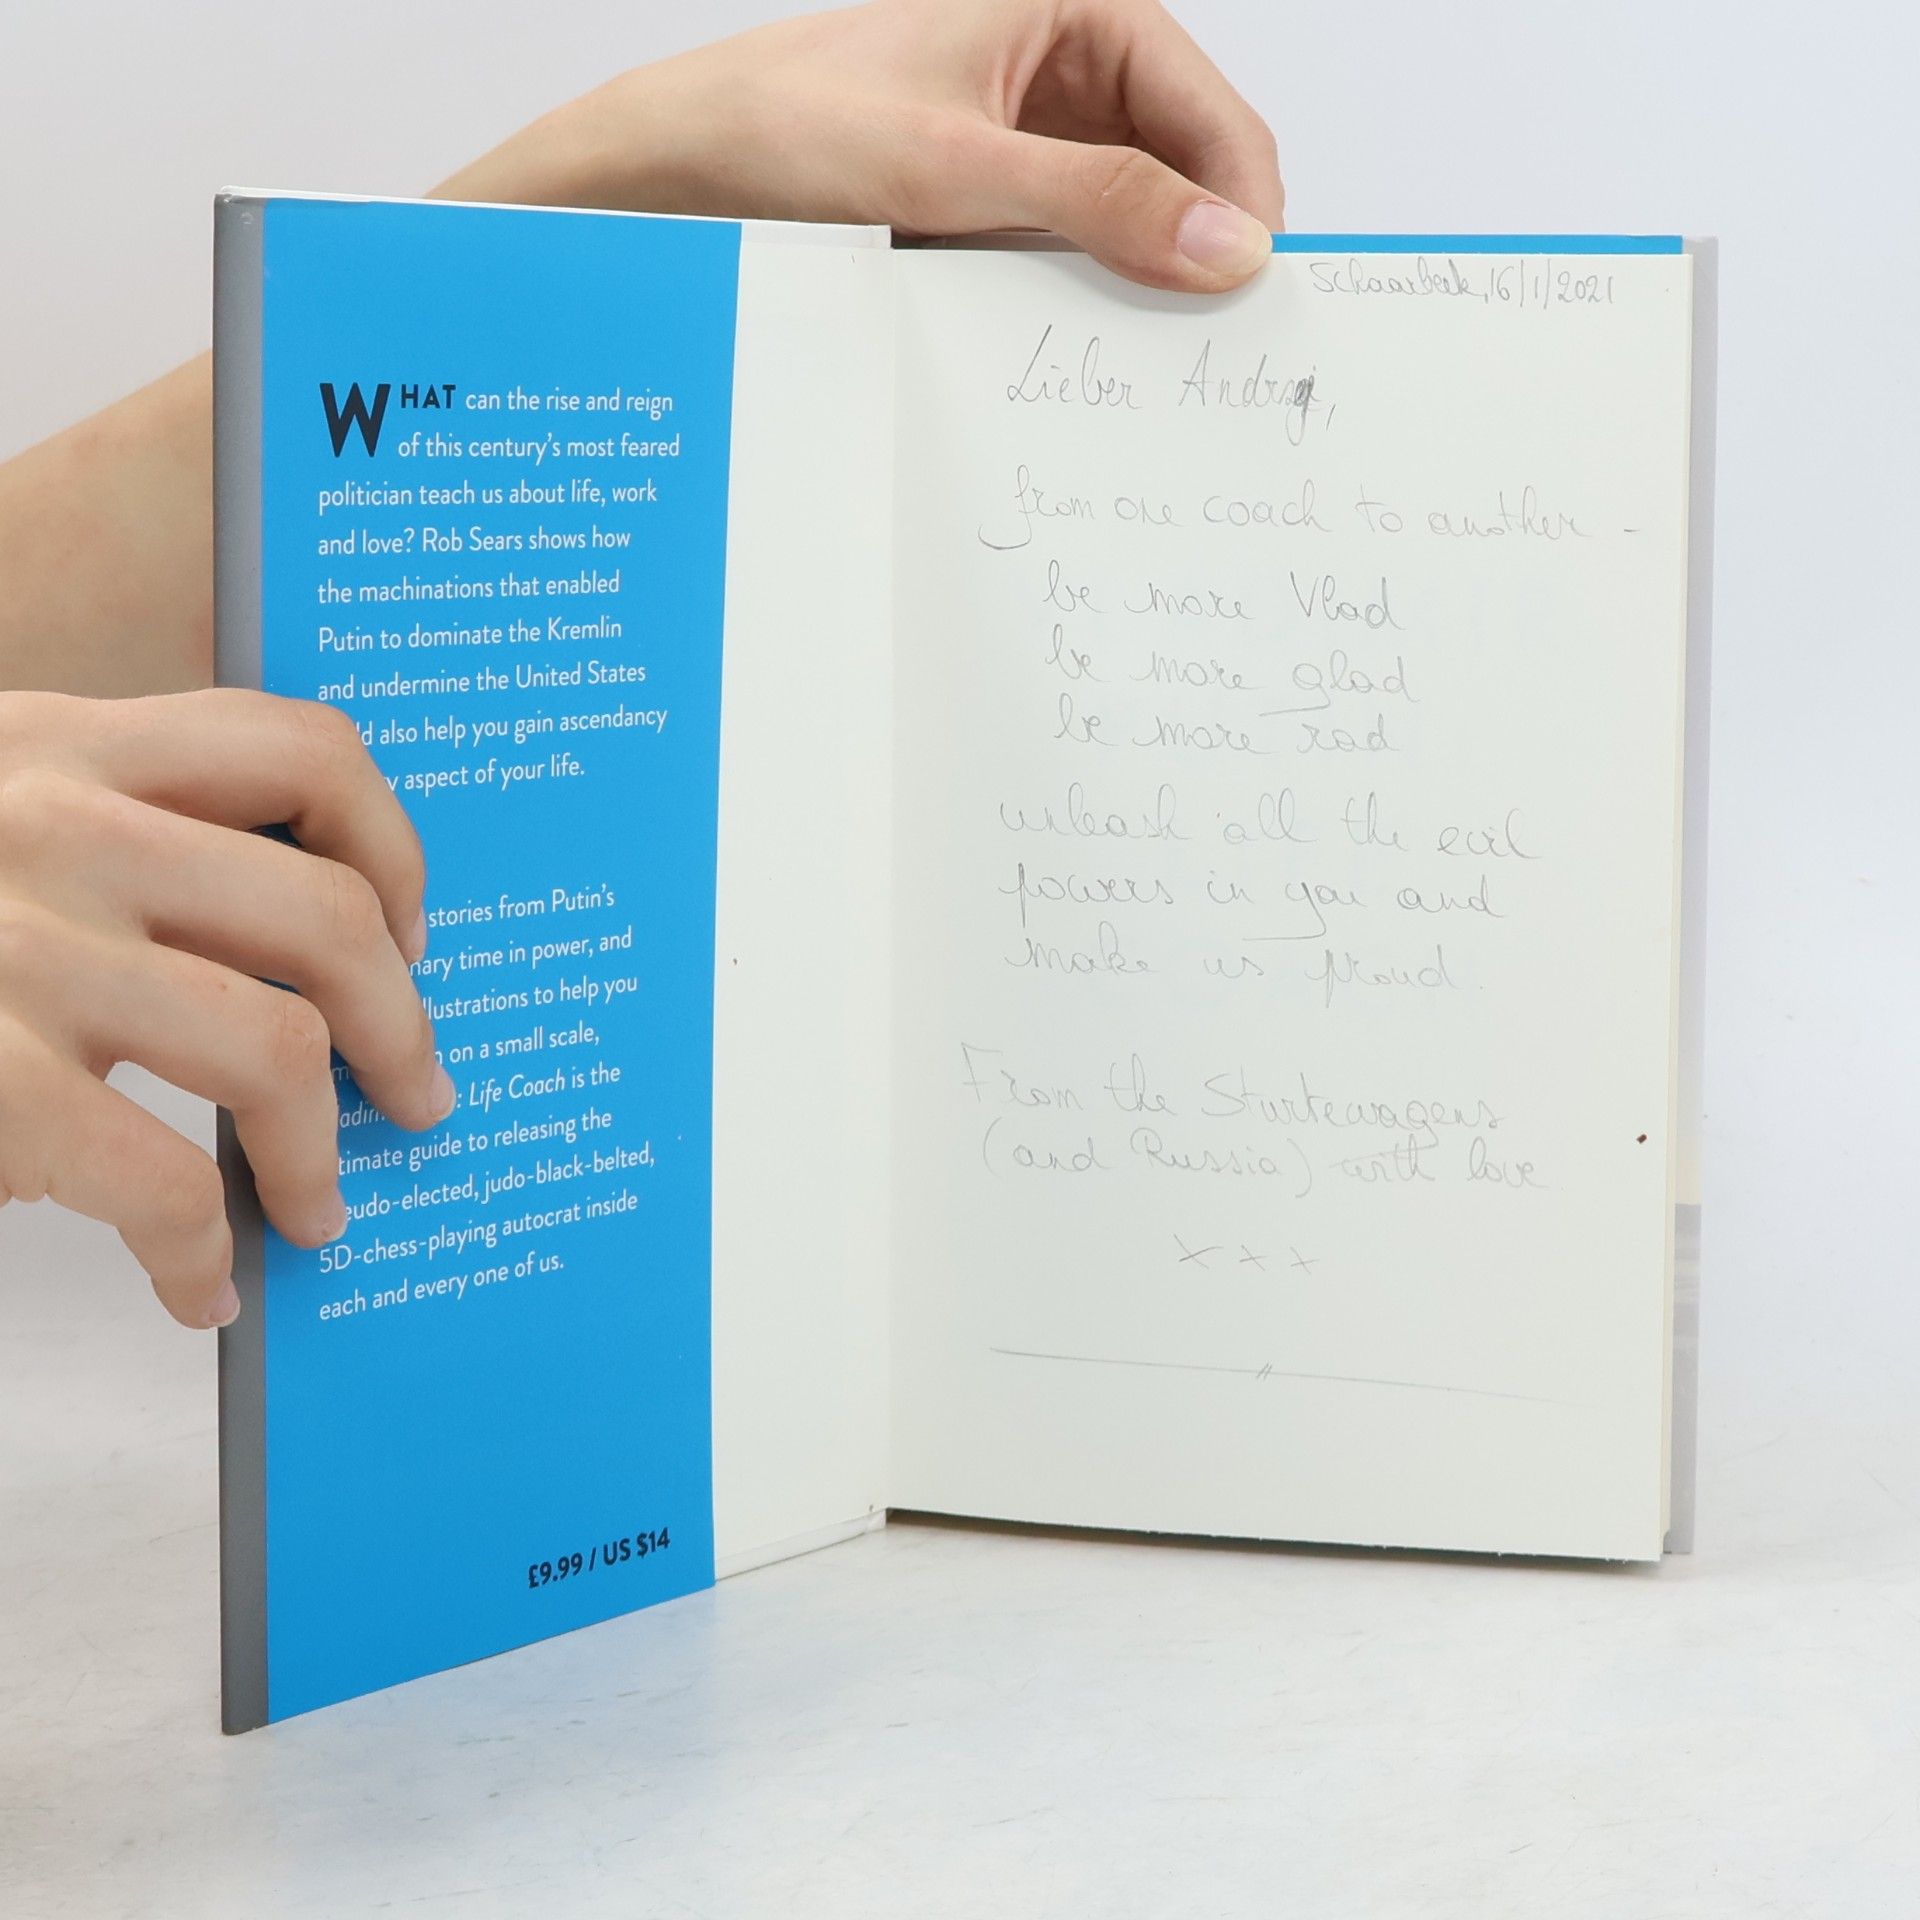 WHAT can the rise and reign
of this century's most feared
politician teach us about life, work
and love? Rob Sears shows how
the machinations that enabled
Putin to dominate the Kremlin
and undermine the United States
also help you gain ascendancy
aspect of your life.
stories from Putin's
time in power, and
to help you
on a small scale,
: Life Coach is the
guide to releasing the
judo-black-belted,
5D-chess-playing autocrat inside
each and every one of us.
£9.99 / US $14
Schaarbeek, 16/1/2021
Lieber Andrzej,
from one coach to another -
be more Vlad
be more glad
be more rad
unleash all the evil
powers in you and
make us proud.
From the Sturtewagens
(and Russia) with love
x x x